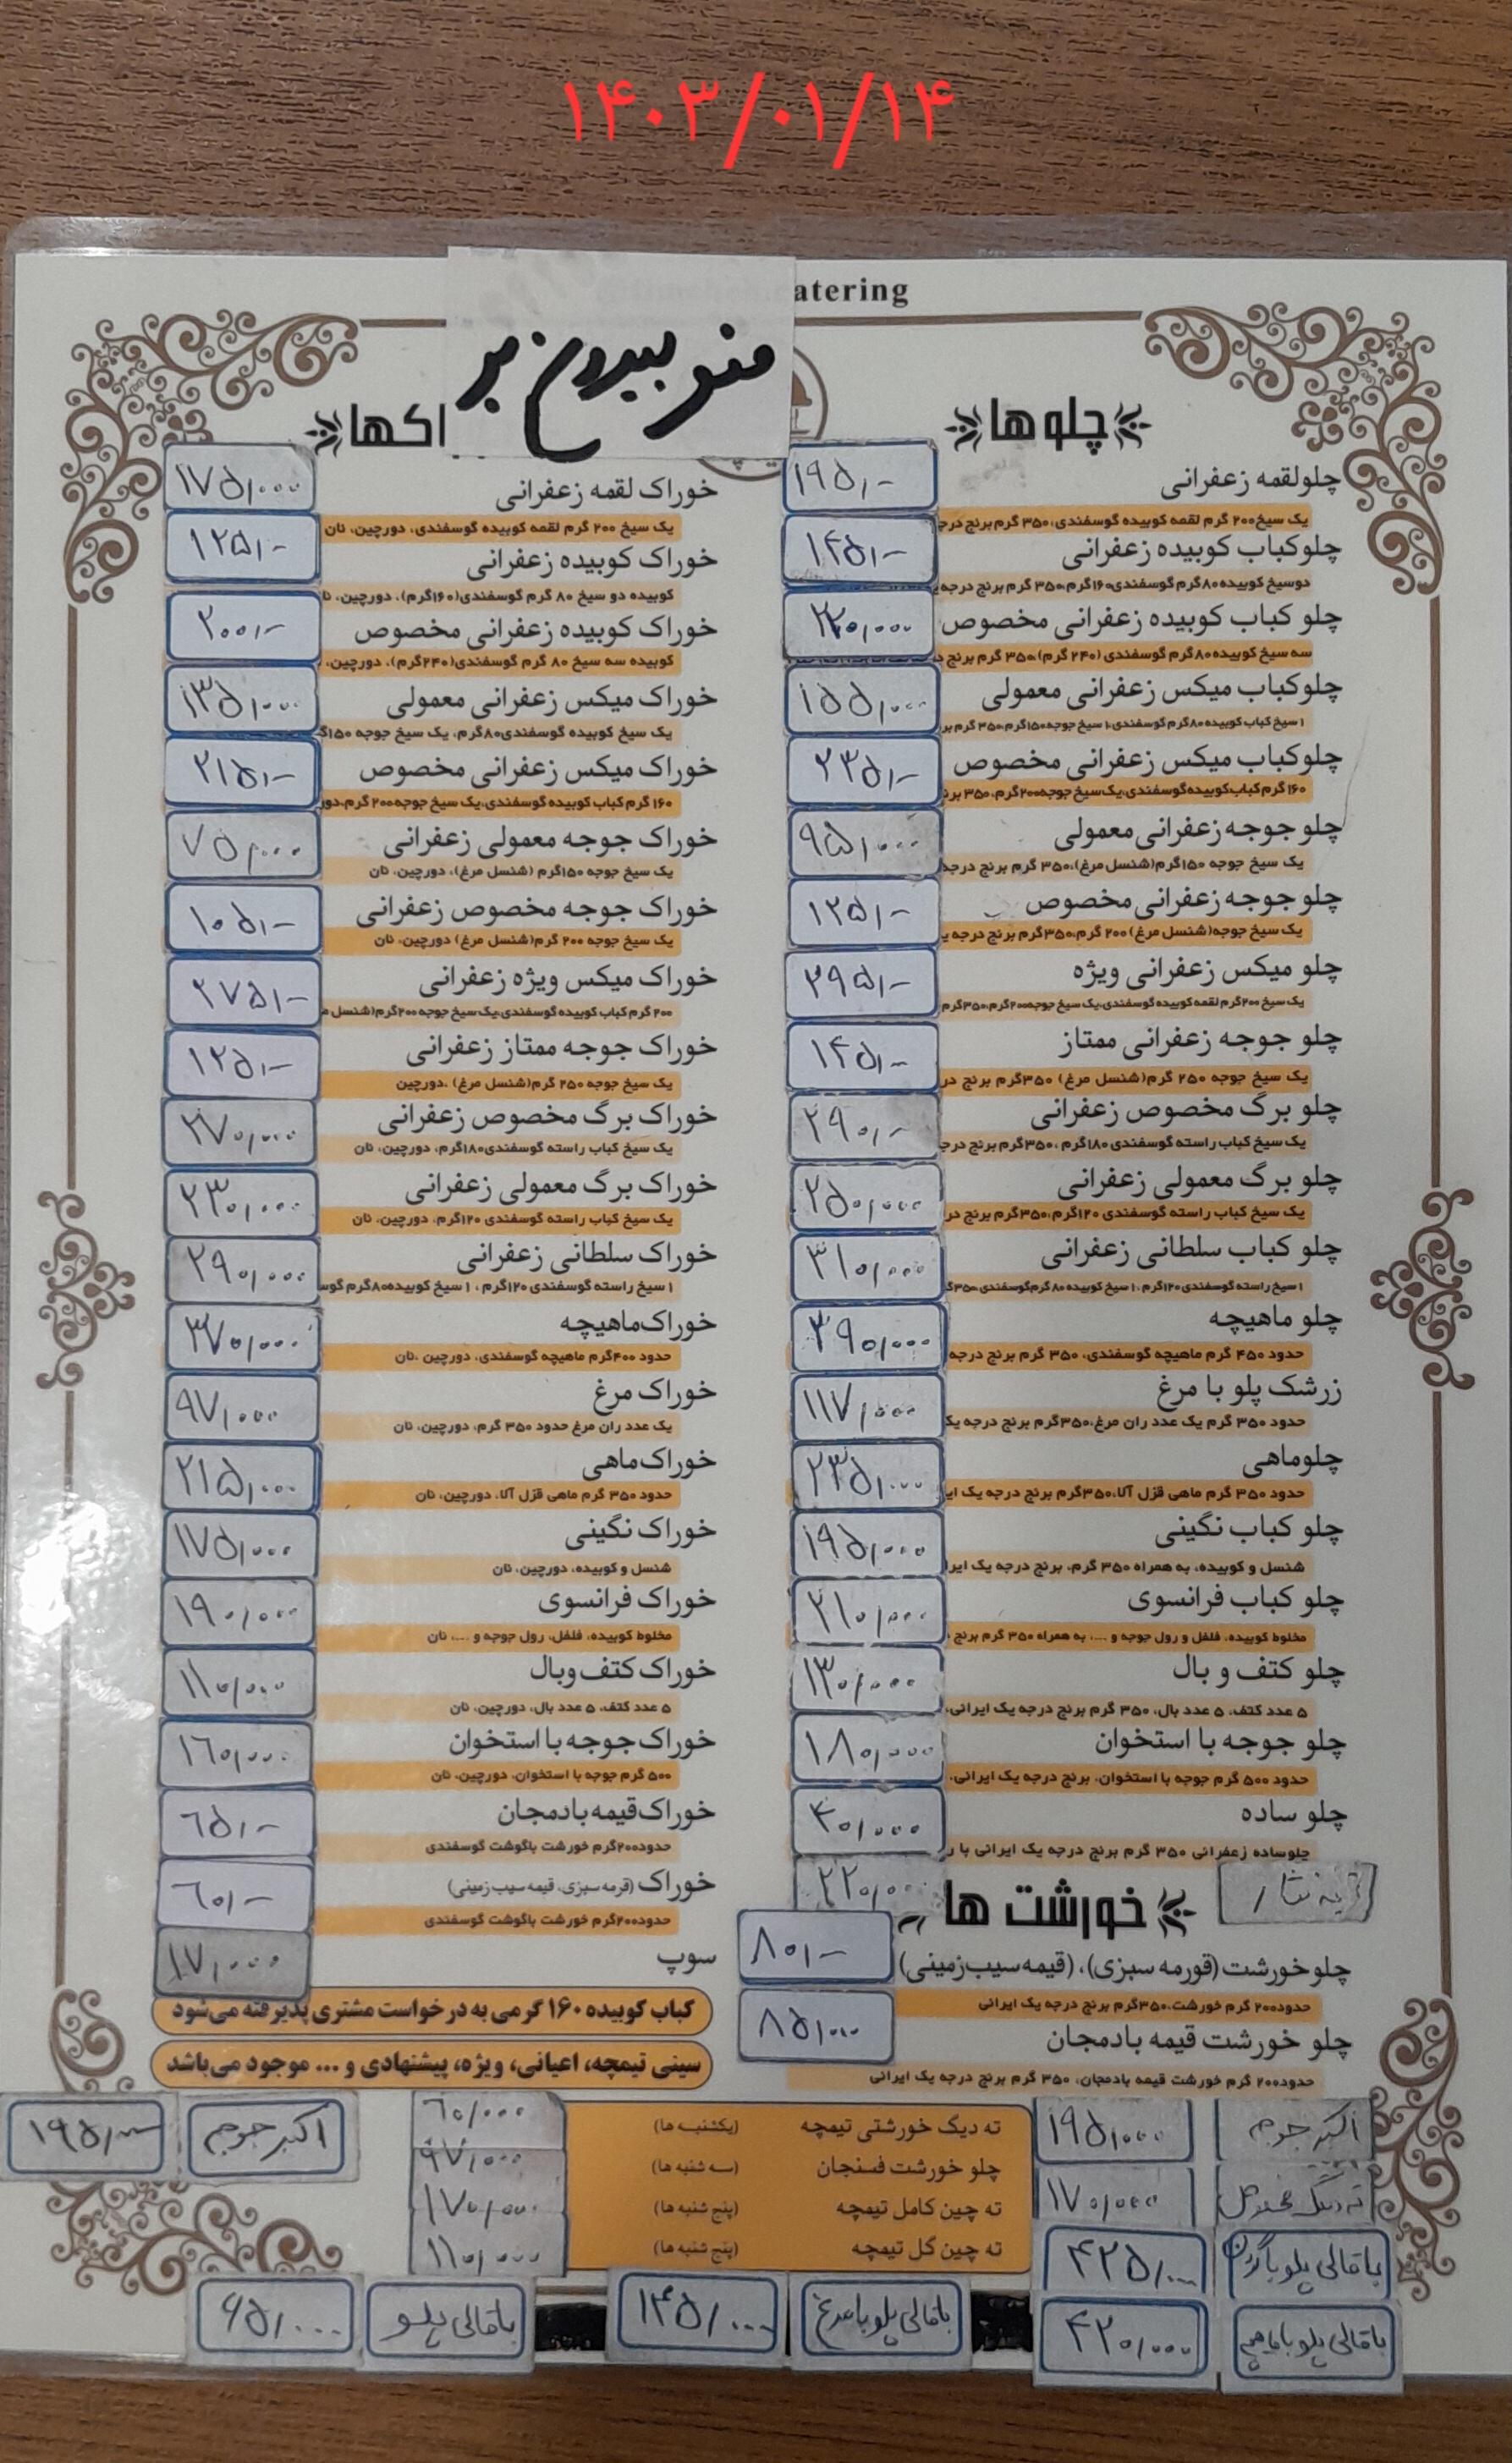 ۱۴۰۳/۰۱/۱۴
atering
منو بیرون بر
چلوها
چلولقمه زعفرانی ۱۹۵/-
یک سیخ۲۰۰ گرم لقمه کوبیده گوسفندی، ۳۵۰ گرم برنج درج
چلوکباب کوبیده زعفرانی ۱۴۵/-
دوسیخ کوبیده۸۰گرم گوسفندی۱۶۰گرم،۳۵۰ گرم برنج درجه
چلو کباب کوبیده زعفرانی مخصوص ۲۲۰/۰۰۰
سه سیخ کوبیده۸۰گرم گوسفندی (۲۴۰ گرم)،۳۵۰ گرم برنج د
چلوکباب میکس زعفرانی معمولی ۱۵۵/۰۰۰
۱ سیخ کباب کوبیده۸۰گرم گوسفندی،۱ سیخ جوجه۱۵۰گرم،۳۵۰ گرم بر
چلوکباب میکس زعفرانی مخصوص ۲۳۵/-
۱۶۰ گرم کباب‌کوبیده‌گوسفندی،یک‌سیخ جوجه۲۰۰گرم، ۳۵۰ برن
چلو جوجه زعفرانی معمولی ۹۵/۰۰۰
یک سیخ جوجه ۱۵۰گرم(شنسل مرغ)،۳۵۰ گرم برنج درجه
چلو جوجه زعفرانی مخصوص ۱۲۵/-
یک سیخ جوجه(شنسل مرغ) ۲۰۰ گرم،۳۵۰گرم برنج درجه ی
چلو میکس زعفرانی ویژه ۲۹۵/-
یک سیخ ۲۰۰گرم لقمه کوبیده گوسفندی،یک سیخ جوجه۲۰۰گرم،۳۵۰گرم
چلو جوجه زعفرانی ممتاز ۱۴۵/-
یک سیخ جوجه ۲۵۰ گرم(شنسل مرغ) ۳۵۰گرم برنج در
چلو برگ مخصوص زعفرانی ۲۹۰/-
یک سیخ کباب راسته گوسفندی ۱۸۰گرم ،۳۵۰گرم برنج درج
چلو برگ معمولی زعفرانی ۲۵۰/۰۰۰
یک سیخ کباب راسته گوسفندی ۱۲۰گرم،۳۵۰گرم برنج در
چلو کباب سلطانی زعفرانی ۳۱۰/۰۰۰
۱ سیخ راسته گوسفندی ۱۲۰گرم ،۱ سیخ کوبیده ۸۰گرم گوسفندی ،۳۵۰گ
چلو ماهیچه ۳۹۰/۰۰۰
حدود ۴۵۰ گرم ماهیچه گوسفندی، ۳۵۰ گرم برنج درجه
زرشک پلو با مرغ ۱۱۷/۰۰۰
حدود ۳۵۰ گرم یک عدد ران مرغ،۳۵۰گرم برنج درجه یک
چلوماهی ۲۳۵/۰۰۰
حدود ۳۵۰ گرم ماهی قزل آلا،۳۵۰گرم برنج درجه یک ایر
چلو کباب نگینی ۱۹۵/۰۰۰
شنسل و کوبیده، به همراه ۳۵۰ گرم، برنج درجه یک ایرا
چلو کباب فرانسوی ۲۱۰/۰۰۰
مخلوط کوبیده، فلفل و رول جوجه و ....، به همراه ۳۵۰ گرم برنج
چلو کتف و بال ۱۳۰/۰۰۰
۵ عدد کتف، ۵ عدد بال، ۳۵۰ گرم برنج درجه یک ایرانی،
چلو جوجه با استخوان ۱۸۰/۰۰۰
حدود ۵۰۰ گرم جوجه با استخوان، برنج درجه یک ایرانی،
چلو ساده ۴۰/۰۰۰
چلوساده زعفرانی ۳۵۰ گرم برنج درجه یک ایرانی با ر
نثار ۲۲۰/۰۰۰
خورشت ها
چلوخورشت (قورمه سبزی)، (قیمه سیب‌زمینی) ۸۰/-
حدود۲۰۰ گرم خورشت،۳۵۰گرم برنج درجه یک ایرانی
چلو خورشت قیمه بادمجان ۸۵/۰۰۰
حدود۲۰۰ گرم خورشت قیمه بادمجان، ۳۵۰ گرم برنج درجه یک ایرانی
اکها
خوراک لقمه زعفرانی ۱۷۵/۰۰۰
یک سیخ ۲۰۰ گرم لقمه کوبیده گوسفندی، دورچین، نان
خوراک کوبیده زعفرانی ۱۲۵/-
کوبیده دو سیخ ۸۰ گرم گوسفندی(۱۶۰گرم)، دورچین، نا
خوراک کوبیده زعفرانی مخصوص ۲۰۰/-
کوبیده سه سیخ ۸۰ گرم گوسفندی(۲۴۰گرم)، دورچین،
خوراک میکس زعفرانی معمولی ۱۳۵/۰۰۰
یک سیخ کوبیده گوسفندی۸۰گرم، یک سیخ جوجه ۱۵۰گ
خوراک میکس زعفرانی مخصوص ۲۱۵/-
۱۶۰ گرم کباب کوبیده گوسفندی،یک سیخ جوجه۲۰۰ گرم،دور
خوراک جوجه معمولی زعفرانی ۷۵/۰۰۰
یک سیخ جوجه ۱۵۰گرم (شنسل مرغ)، دورچین، نان
خوراک جوجه مخصوص زعفرانی ۱۰۵/-
یک سیخ جوجه ۲۰۰ گرم(شنسل مرغ) دورچین، نان
خوراک میکس ویژه زعفرانی ۲۷۵/-
۲۰۰ گرم کباب کوبیده گوسفندی،یک سیخ جوجه ۲۰۰گرم(شنسل م
خوراک جوجه ممتاز زعفرانی ۱۲۵/-
یک سیخ جوجه ۲۵۰ گرم(شنسل مرغ) ،دورچین
خوراک برگ مخصوص زعفرانی ۲۷۰/۰۰۰
یک سیخ کباب راسته گوسفندی۱۸۰گرم، دورچین، نان
خوراک برگ معمولی زعفرانی ۲۳۰/۰۰۰
یک سیخ کباب راسته گوسفندی ۱۲۰گرم، دورچین، نان
خوراک سلطانی زعفرانی ۲۹۰/۰۰۰
۱ سیخ راسته گوسفندی ۱۲۰گرم ، ۱ سیخ کوبیده۸۰گرم گوس
خوراک‌ماهیچه ۳۷۰/۰۰۰
حدود ۴۰۰گرم ماهیچه گوسفندی، دورچین ،نان
خوراک مرغ ۹۷/۰۰۰
یک عدد ران مرغ حدود ۳۵۰ گرم، دورچین، نان
خوراک‌ماهی ۲۱۵/۰۰۰
حدود ۳۵۰ گرم ماهی قزل آلا، دورچین، نان
خوراک نگینی ۱۷۵/۰۰۰
شنسل و کوبیده، دورچین، نان
خوراک فرانسوی ۱۹۰/۰۰۰
مخلوط کوبیده، فلفل، رول جوجه و ....، نان
خوراک کتف وبال ۱۱۰/۰۰۰
۵ عدد کتف، ۵ عدد بال، دورچین، نان
خوراک جوجه با استخوان ۱۶۰/۰۰۰
۵۰۰ گرم جوجه با استخوان، دورچین، نان
خوراک قیمه بادمجان ۶۵/-
حدود۲۰۰گرم خورشت باگوشت گوسفندی
خوراک (قرمه سبزی، قیمه سیب زمینی) ۶۰/-
حدود۲۰۰گرم خورشت باگوشت گوسفندی
سوپ ۱۷/۰۰۰
کباب کوبیده ۱۶۰ گرمی به درخواست مشتری پذیرفته می‌شود
سینی تیمچه، اعیانی، ویژه، پیشنهادی و ... موجود می‌باشد
اکبر جوجه ۱۹۵/۰۰۰
ته دیگ ۱۷۰/۰۰۰
باقالی پلو با گردن ۴۲۵/۰۰۰
باقالی پلو با ماهیچه ۴۲۰/۰۰۰
ته دیگ خورشتی تیمچه (یکشنبه ها) ۶۰/۰۰۰
چلو خورشت فسنجان (سه شنبه ها) ۹۷/۰۰۰
ته چین کامل تیمچه (پنج شنبه ها) ۱۷۰/۰۰۰
ته چین گل تیمچه (پنج شنبه ها) ۱۱۰/۰۰۰
اکبر جوجه ۱۹۵/۰۰۰
باقالی پلو با مرغ ۱۴۵/۰۰۰
باقالی پلو ۶۵/۰۰۰